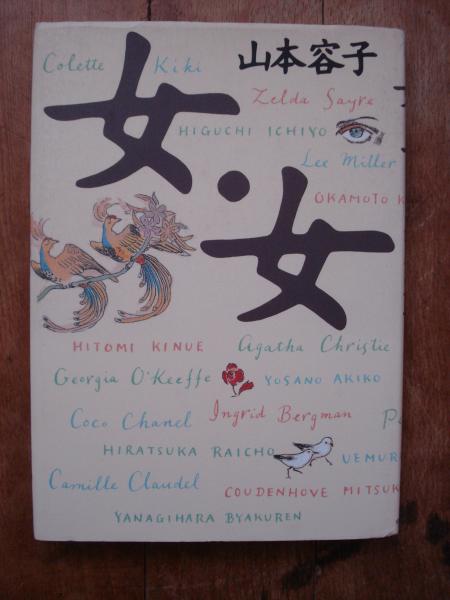 山本容子
女・女
Colette Kiki
Zelda Sayre
HIGUCHI ICHIYO
Lee Miller
OKAMOTO K
HITOMI KINUE Agatha Christie
Georgia O'Keeffe YOSANO AKIKO
Coco Chanel Ingrid Bergman
HIRATSUKA RAICHO UEMUR
Camille Claudel COUDENHOVE MITSUK
YANAGIHARA BYAKUREN